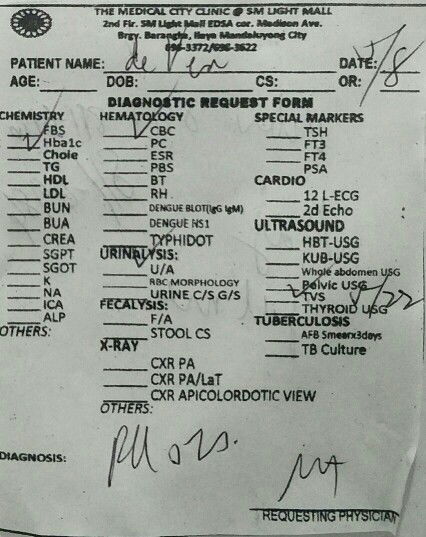 THE MEDICAL CITY CLINIC @ SM LIGHT MALL
2nd Flr. SM Light Mall EDSA cor. Madison Ave.
Brgy. Barangka, Ilaya Mandaluyong City
696-3372/696-3622
PATIENT NAME: de DATE: 5/8
AGE: DOB: CS: OR:
DIAGNOSTIC REQUEST FORM
CHEMISTRY
FBS
Hba1c
Chole
TG
HDL
LDL
BUN
BUA
CREA
SGPT
SGOT
K
NA
ICA
ALP
OTHERS:
HEMATOLOGY
CBC
PC
ESR
PBS
BT
RH
DENGUE BLOT(IgG IgM)
DENGUE NS1
TYPHIDOT
URINALYSIS:
U/A
RBC MORPHOLOGY
URINE C/S G/S
FECALYSIS:
F/A
STOOL CS
X-RAY
CXR PA
CXR PA/LaT
CXR APICOLORDOTIC VIEW
OTHERS:
SPECIAL MARKERS
TSH
FT3
FT4
PSA
CARDIO
12 L-ECG
2d Echo
ULTRASOUND
HBT-USG
KUB-USG
Whole abdomen USG
Pelvic USG
TVS 5/22
THYROID USG
TUBERCULOSIS
AFB Smearx3days
TB Culture
DIAGNOSIS:
REQUESTING PHYSICIAN